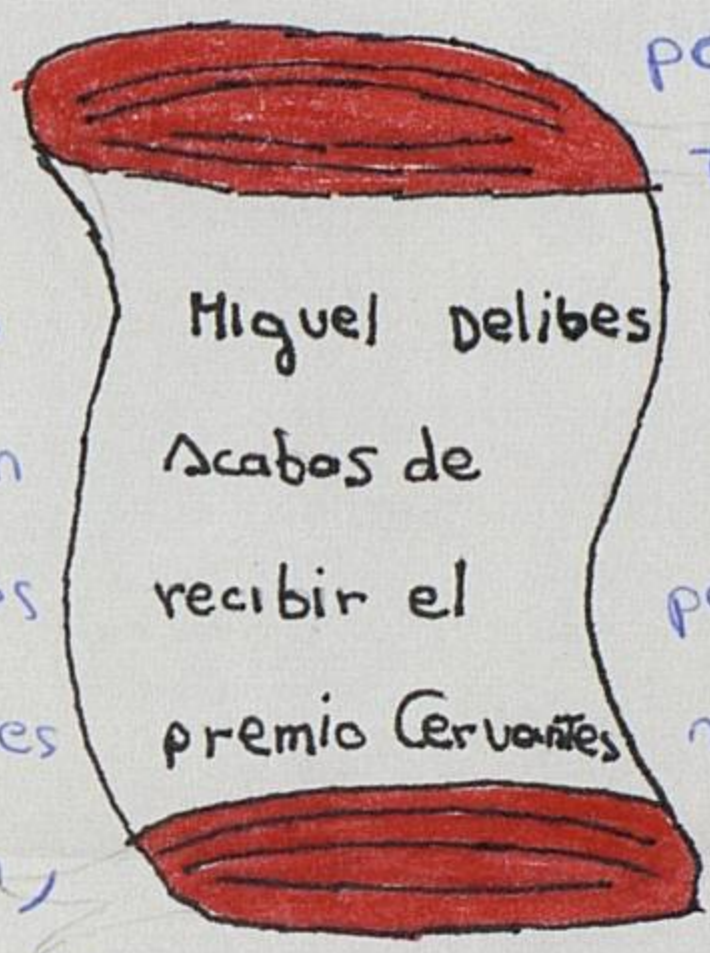 Miguel Delibes
Acabas de
recibir el
premio Cervantes